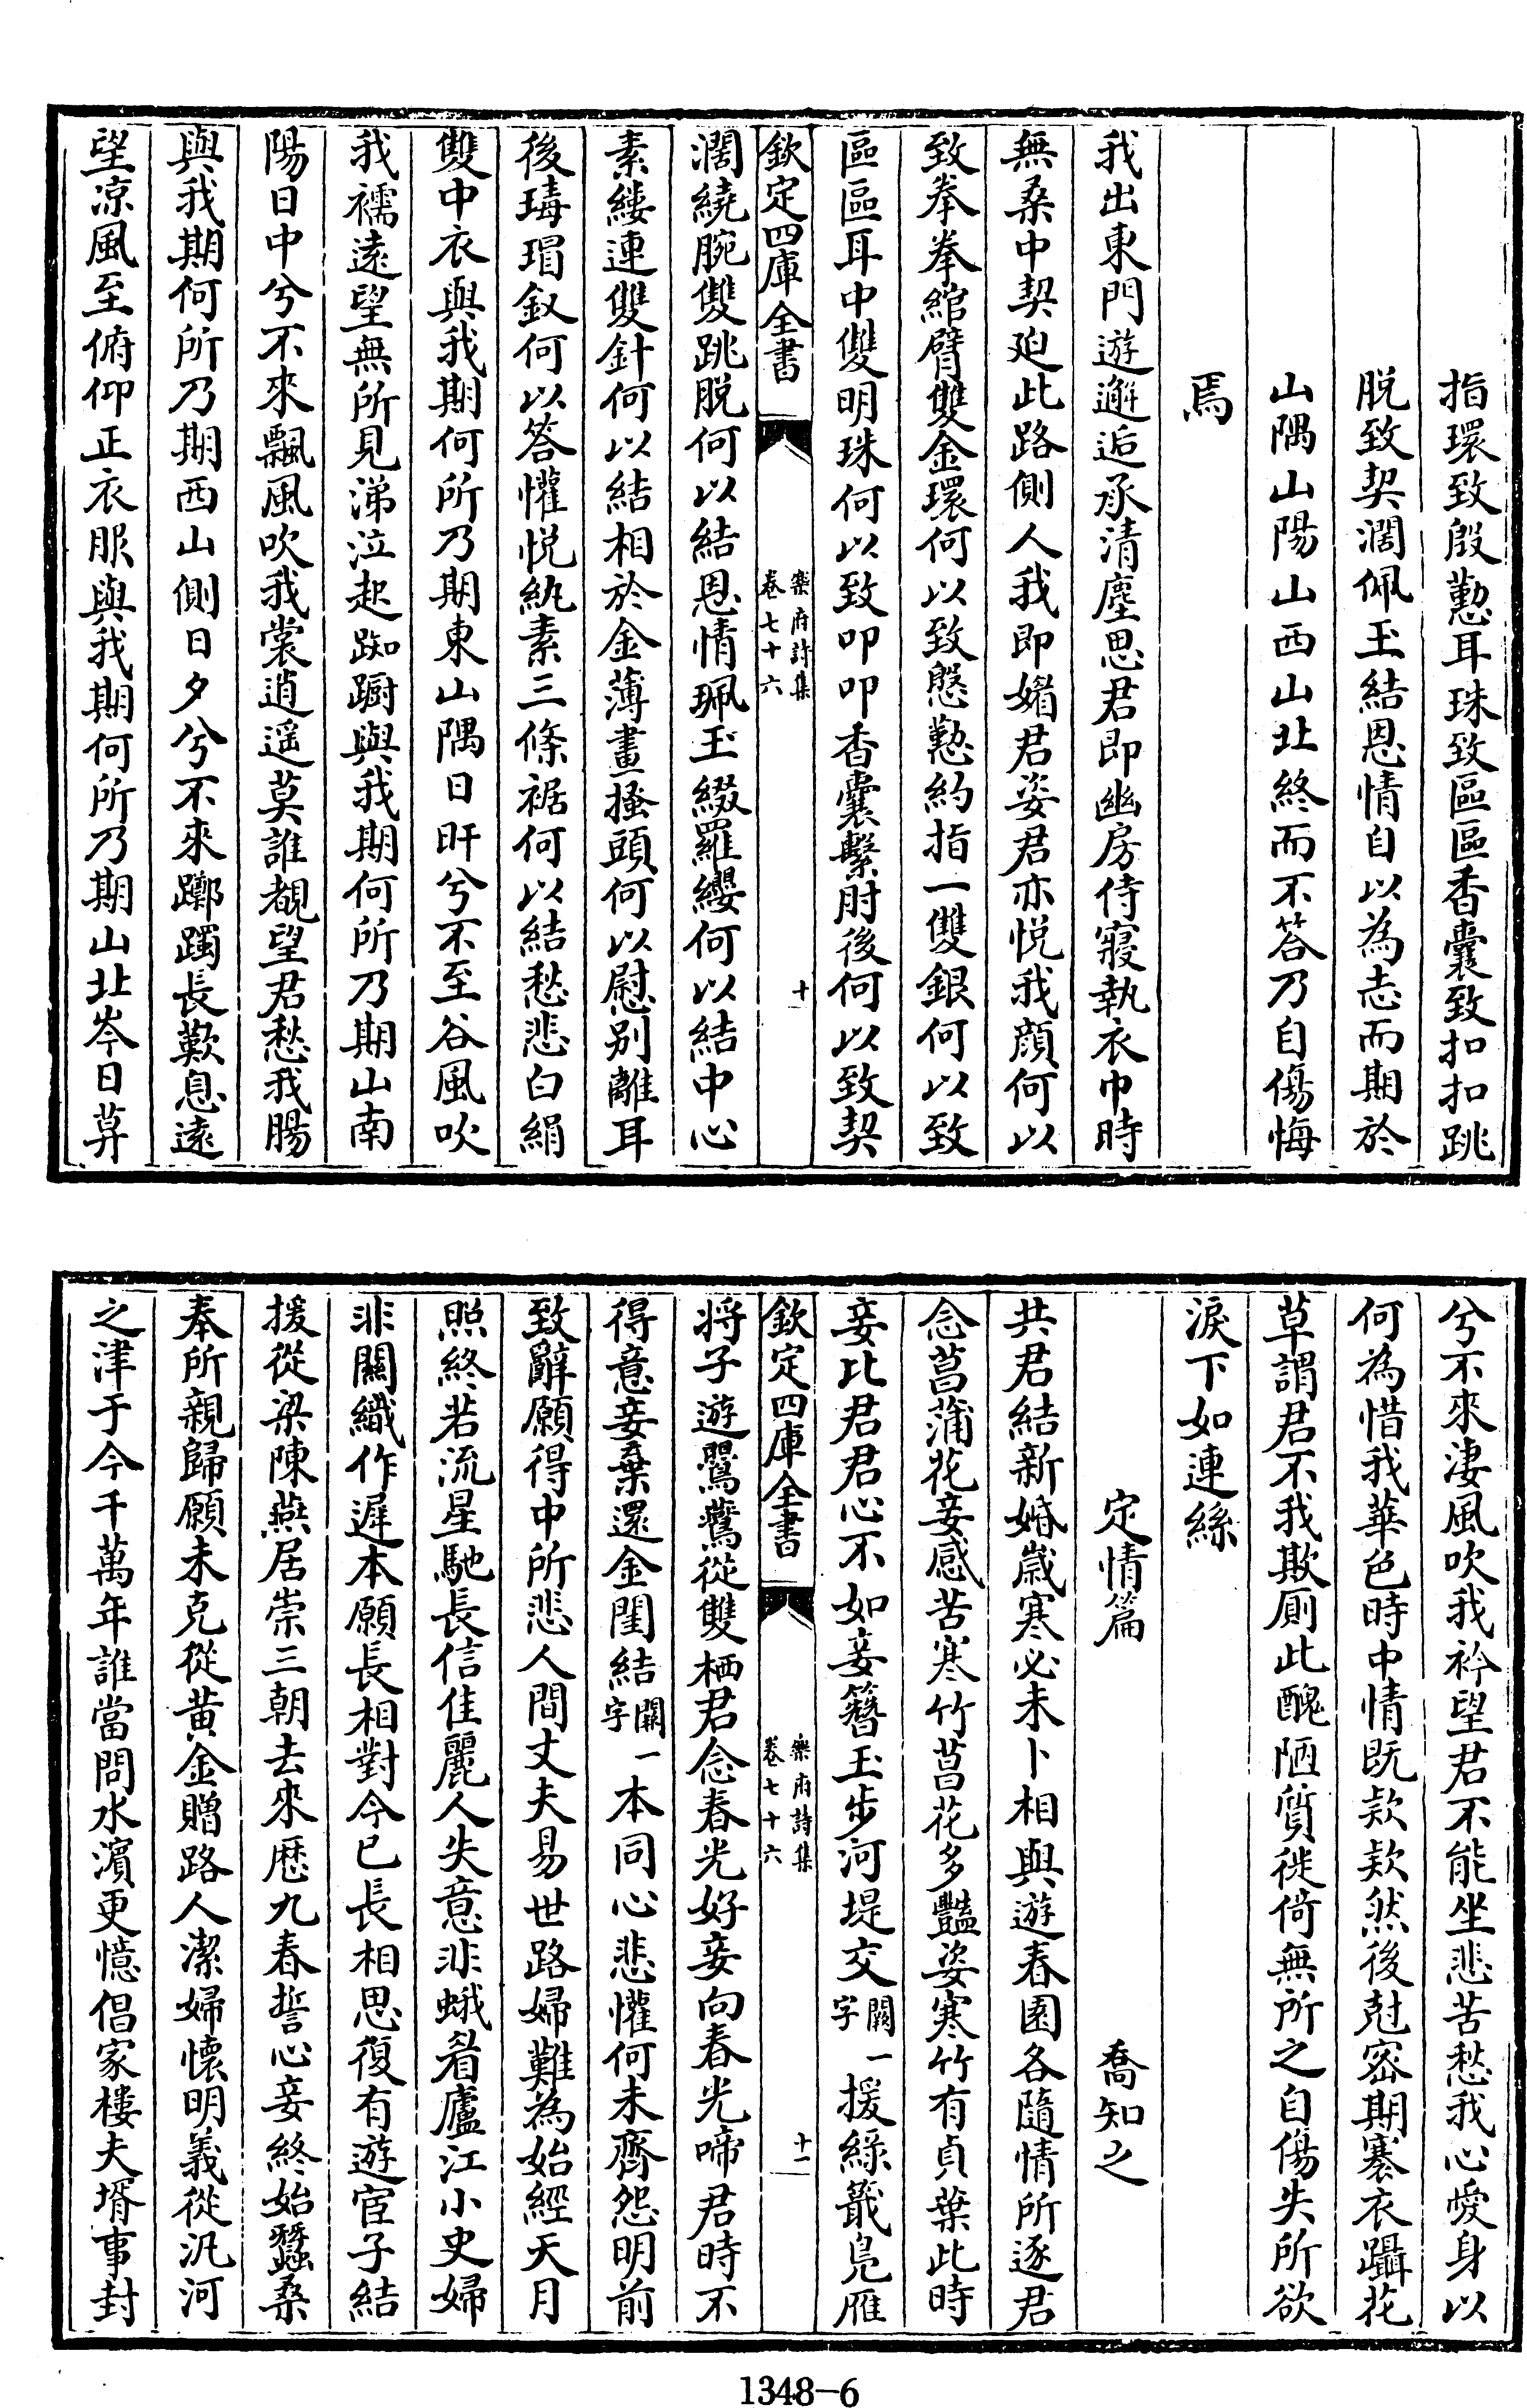 指環致殷懃耳珠致區區香囊致扣扣跳
脱致契濶佩玉結恩情自以為志而期於
山隅山陽山西山北終而不答乃自傷悔
焉
我出東門遊邂逅承清塵思君即幽房侍寢執衣巾時
無桑中契廹此路側人我即媚君姿君亦悅我顔何以
致拳拳綰臂雙金環何以致慇懃約指一雙銀何以致
區區耳中雙明珠何以致叩叩香囊繫肘後何以致契
欽定四庫全書
樂府詩集
卷七十六
十
濶繞腕雙跳脱何以結恩情珮玉綴羅纓何以結中心
素縷連雙針何以結相於金薄畫搔頭何以慰别離耳
後瑇瑁釵何以答懽悦紈素三條裾何以結愁悲白絹
雙中衣與我期何所乃期東山隅日旰兮不至谷風吹
我襦遠望無所見涕泣起踟躕與我期何所乃期山南
陽日中兮不來飄風吹我裳逍遥莫誰覩望君愁我腸
與我期何所乃期西山側日夕兮不來躑躅長歎息遠
望凉風至俯仰正衣服與我期何所乃期山北岑日莫
兮不來淒風吹我衿望君不能坐悲苦愁我心愛身以
何為惜我華色時中情既欵欵然後尅宻期褰衣躡花
草謂君不我欺厠此醜陋質徙倚無所之自傷失所欲
淚下如連絲
定情篇
喬知之
共君結新婚歳寒必未卜相與遊春園各隨情所逐君
念菖蒲花妾感苦寒竹菖花多豔姿寒竹有貞葉此時
妾比君君心不如妾簪玉步河堤交闕一字援綠䉛鳧雁
欽定四庫全書
樂府詩集
卷七十六
十一
将子遊鸎鷰從雙栖君念春光好妾向春光啼君時不
得意妾棄還金閨結闕一字本同心悲懽何未齊怨明前
致辭願得中所悲人間丈夫易世路婦難為始經天月
照終若流星馳長信佳麗人失意非蛾眉廬江小吏婦
非關織作遲本願長相對今已長相思復有遊宦子結
援從梁陳燕居崇三朝去來厯九春誓心妾終始蠶桑
奉所親歸願未克從黄金贈路人潔婦懷明義從汎河
之津于今千萬年誰當問水濱更憶倡家樓夫壻事封
1348-6